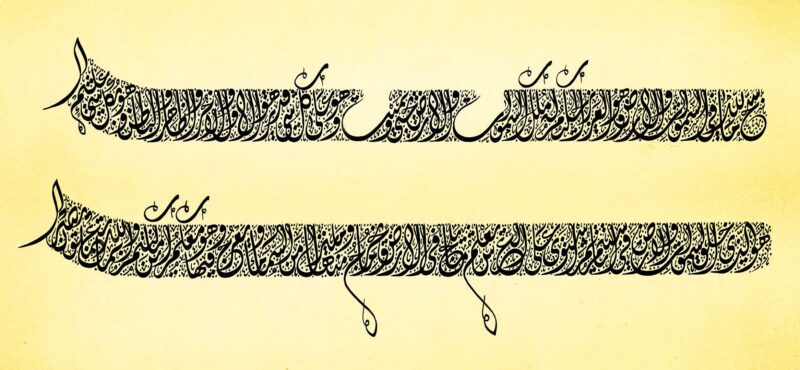 سبح لله ما في السموات والأرض وهو العزيز الحكيم له ملك السموات والأرض يحيي ويميت وهو على كل شيء قدير هو الأول والآخر والظاهر والباطن وهو بكل شيء عليم
هو الذي خلق السموات والأرض في ستة أيام ثم استوى على العرش يعلم ما يلج في الأرض وما يخرج منها وما ينزل من السماء وما يعرج فيها وهو معكم أين ما كنتم والله بما تعملون بصير